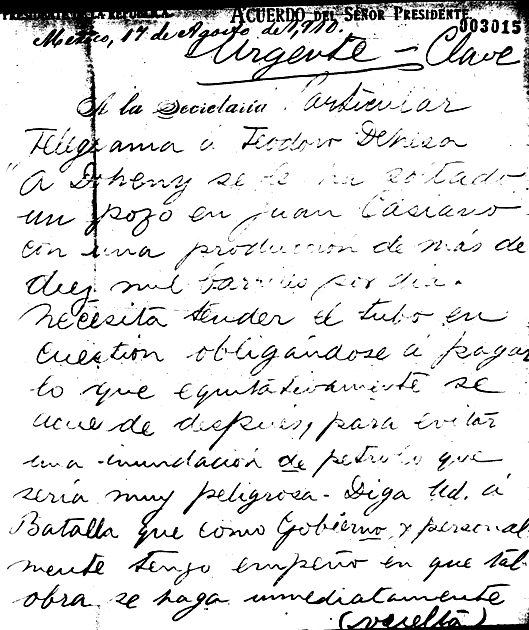 PRESIDENCIA DE LA REPUBLICA. ACUERDO DEL SEÑOR PRESIDENTE
003015
Mexico, 17 de Agosto de 1,910.
Urgente - Clave
A la Secretaria Particular
Telegrama á Teodoro Dehesa
"A Doheny se le ha soltado
un pozo en Juan Casiano
con una producción de más de
diez mil barriles por dia.
Necesita tender el tubo en
cuestion obligándose á pagar
lo que equitativamente se
acuerde despues, para evitar
una inundación de petroleo que
sería muy peligrosa - Diga Ud. á
Batalla que como Gobierno y personal
mente tengo empeño en que tal
obra se haga inmediatamente
(vuelta)